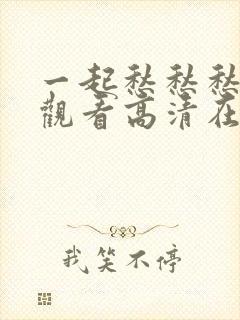 一起愁愁愁
觀看高清在
我笑不停